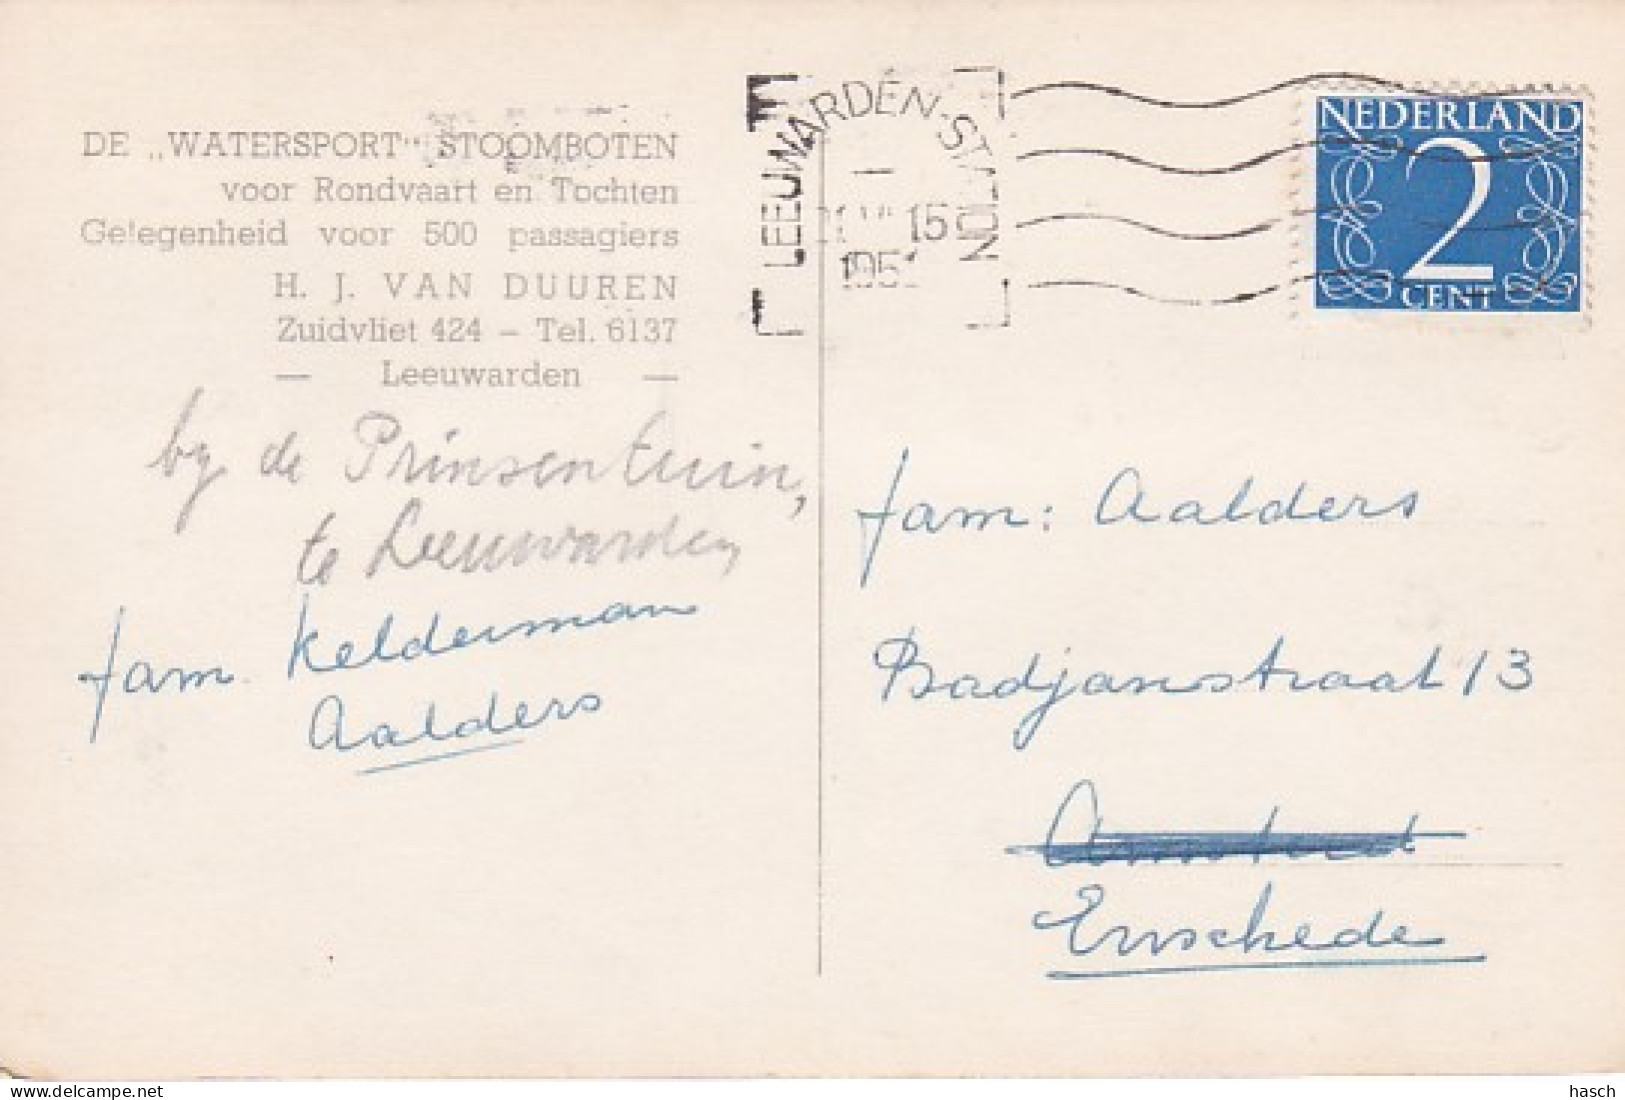 DE „WATERSPORT" STOOMBOTEN
voor Rondvaart en Tochten
Gelegenheid voor 500 passagiers
H. J. VAN DUUREN
Zuidvliet 424 – Tel. 6137
— Leeuwarden —
by de Prinsentuin,
te Leeuwarden
fam. Kelderman
Aalders
LEEUWARDEN-STATION
15
NEDERLAND
2
CENT
fam: Aalders
Badjanstraat 13
Enschede
hasch
delcampe.net